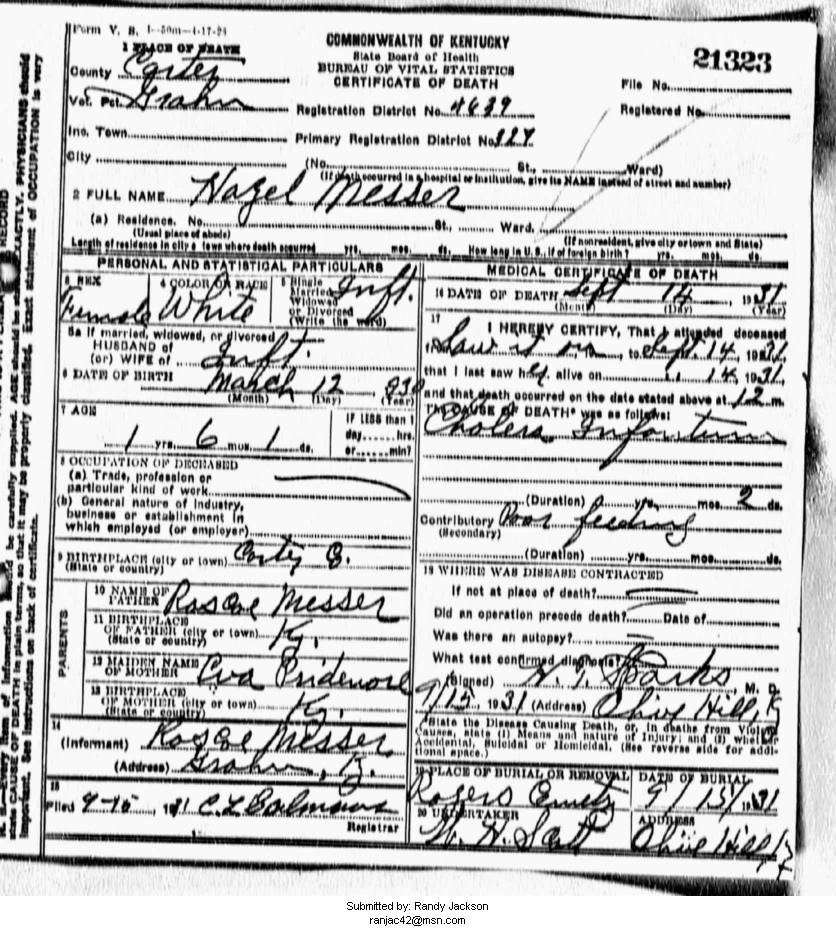 Form V. S. 1-50m-4-17-24
COMMONWEALTH OF KENTUCKY
State Board of Health
BUREAU OF VITAL STATISTICS
CERTIFICATE OF DEATH
21323
1 PLACE OF DEATH
County Carter
Vot. Pct. Grahn
Inc. Town
City
Registration District No. 4639
Primary Registration District No. 827
File No.
Registered No.
(No. St., Ward)
(If death occurred in a hospital or institution, give its NAME instead of street and number)
2 FULL NAME Hazel Messer
(a) Residence. No. St., Ward.
(Usual place of abode) (If nonresident, give city or town and State)
Length of residence in city or town where death occurred yrs. mos. ds. How long in U. S., if of foreign birth? yrs. mos. ds.
PERSONAL AND STATISTICAL PARTICULARS
3 SEX Female
4 COLOR OR RACE White
5 Single Married Widowed or Divorced (Write the word) Inft.
5a If married, widowed, or divorced
HUSBAND of
(or) WIFE of Inft.
6 DATE OF BIRTH March 12
(Month) (Day) (Year)
7 AGE
1 yrs. 6 mos. 1 ds.
IF LESS than 1
day hrs.
or min?
8 OCCUPATION OF DECEASED
(a) Trade, profession or
particular kind of work
(b) General nature of industry,
business or establishment in
which employed (or employer)
9 BIRTHPLACE (city or town) Carter C.
(State or country)
PARENTS
10 NAME OF FATHER Roscoe Messer
11 BIRTHPLACE OF FATHER (city or town) Ky.
(State or country)
12 MAIDEN NAME OF MOTHER Eva Pridemore
13 BIRTHPLACE OF MOTHER (city or town) Ky.
(State or country)
14
(Informant) Roscoe Messer
(Address) Grahn, Ky.
15
Filed 9-15 1931
Registrar
MEDICAL CERTIFICATE OF DEATH
16 DATE OF DEATH Sept 14, 1931
(Month) (Day) (Year)
17 I HEREBY CERTIFY, That I attended deceased
from Saw it on, to Sept. 14, 1931
that I last saw h alive on 14, 1931,
and that death occurred on the date stated above at 12 m.
The CAUSE OF DEATH* was as follows:
Cholera Infantum
(Duration) yrs. mos. 2 ds.
Contributory Poor feeding
(Secondary)
(Duration) yrs. mos. ds.
18 WHERE WAS DISEASE CONTRACTED
If not at place of death?
Did an operation precede death? Date of
Was there an autopsy?
What test confirmed diagnosis?
(Signed) Sparks, M. D.
9/15 1931 (Address) Olive Hill, Ky
*State the Disease Causing Death, or, in deaths from Violent
Causes, state (1) Means and nature of Injury; and (2) whether
Accidental, Suicidal or Homicidal. (See reverse side for addi-
tional space.)
19 PLACE OF BURIAL OR REMOVAL
Rogers Cemety
DATE OF BURIAL
9/15/1931
20 UNDERTAKER
Scott
ADDRESS
Olive Hill Ky
Submitted by: Randy Jackson
ranjac42@msn.com